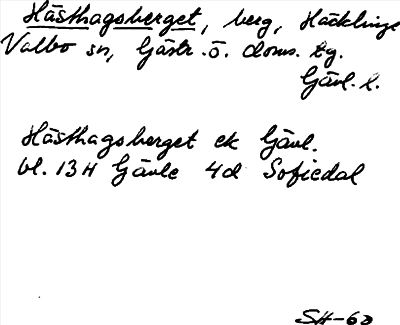 Hästhagsberget, berg, Häcklinge
Valbo sn, Gästr. ö. doms. tg.
Gävl. l.
Hästhagsberget ek Gävl.
bl. 13H Gävle 4d Sofiedal
SH-60